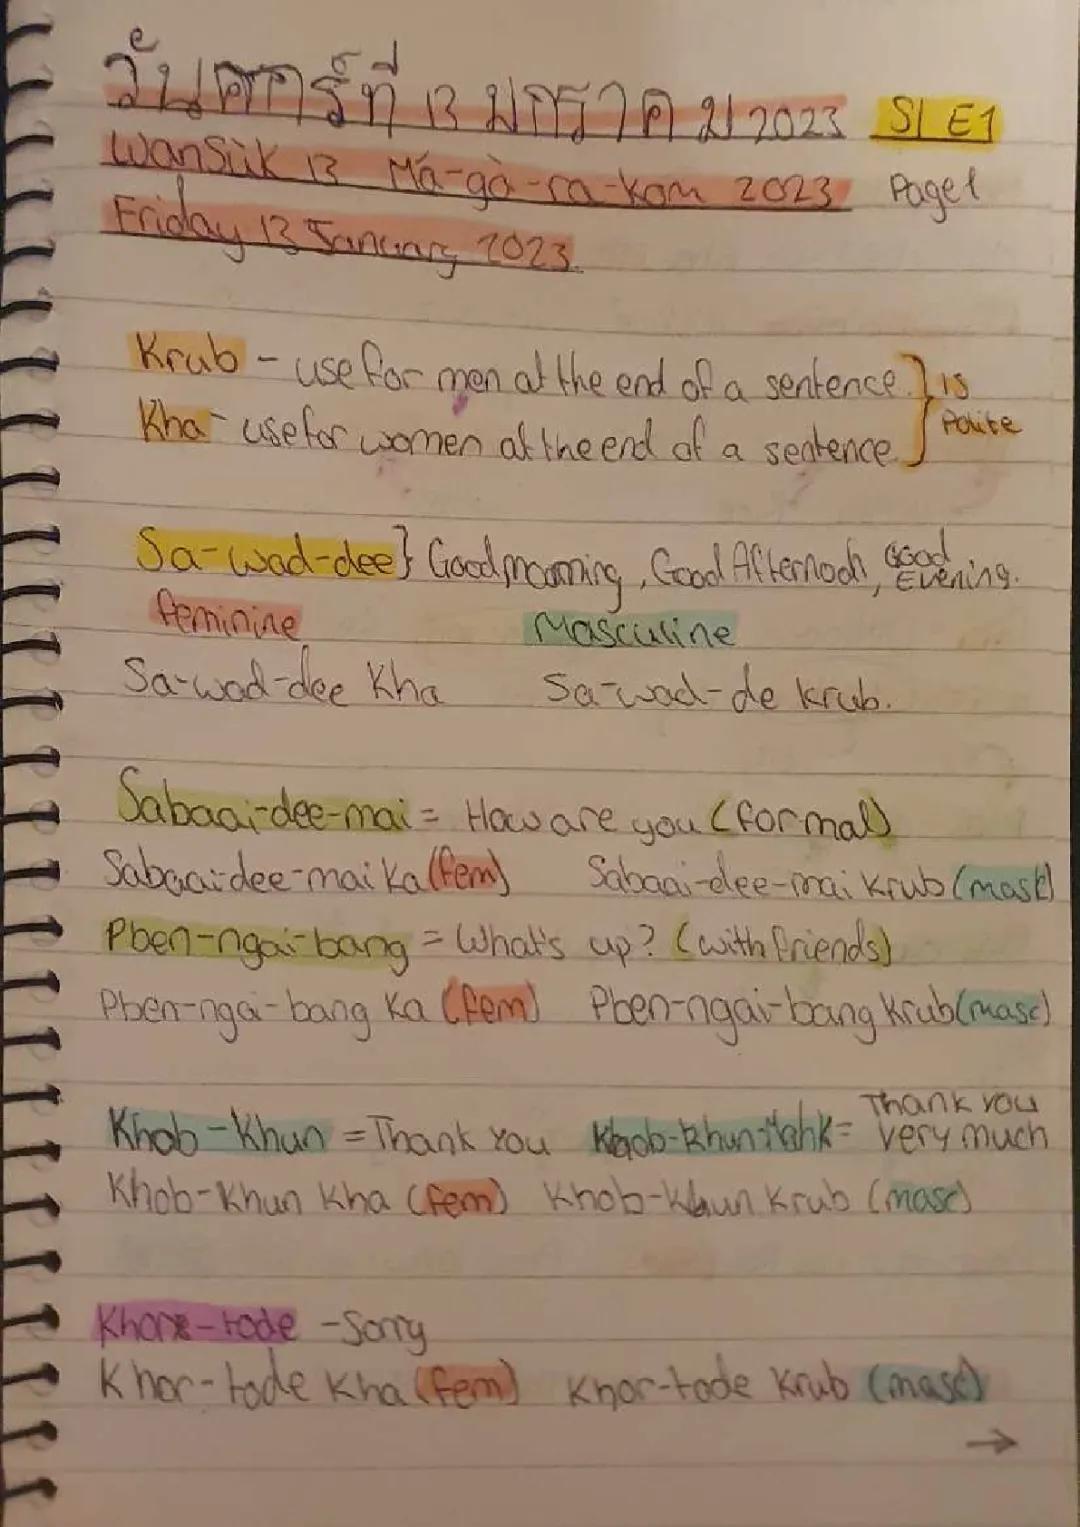 วันศุกร์ที่ 13 มกราคม 2023 S1 E1
Wansùk 13 Má-gà-ra-kom 2023 Page 1
Friday 13 January 2023.
Krub - use for men at the end of a sentence. } is
Kha - use for women at the end of a sentence. Polite
Sa-wad-dee } Good morning, Good Afternoon, Good Evening.
feminine Masculine
Sa-wad-dee Kha Sa-wad-de krub.
Sabaai-dee-mai = How are you (formal)
Sabaai-dee-mai Ka (fem) Sabaai-dee-mai Krub (mask)
Pben-ngai-bang = What's up? (with friends)
Pben-ngai-bang Ka (fem) Pben-ngai-bang Krub (masc)
Khob-Khun = Thank You Khob-Khun-Mahk = Thank you very much
Khob-Khun Kha (fem) Khob-Khun Krub (masc)
Khor-tode - Sorry
Khor-tode Kha (fem) Khor-tode Krub (masc)
→